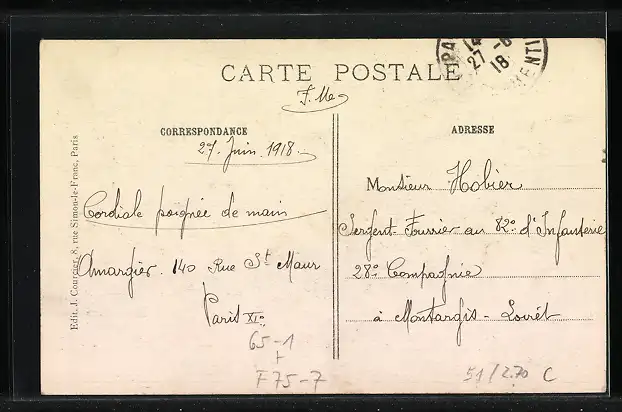 CARTE POSTALE
F. Me
CORRESPONDANCE
27 Juin 1918.
Cordiale poignée de main
Amargier. 140 Rue St Maur
Paris XIe
65-1
+
F75-7
Edit. J. Courcier, 8, rue Simon-le-Franc, Paris
PA
14
27 -6
18
ENTI
ADRESSE
Monsieur Hobier
Sergent-Fourrier au 82e d'Infanterie
28e Compagnie
à Montargis - Loiret
51/2.70 C